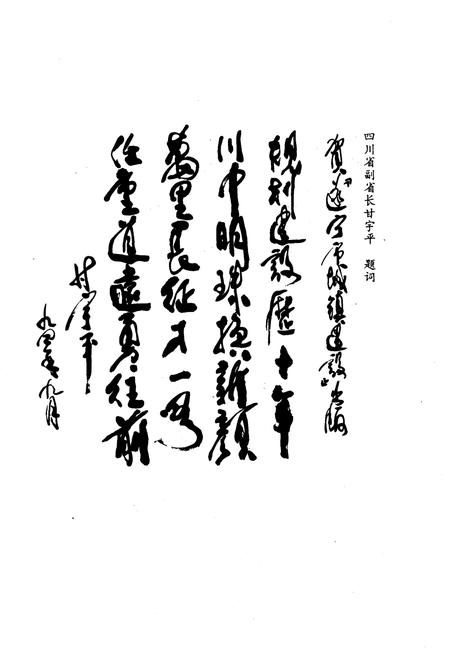 四川省副省长甘宇平 题词
贺遂宁市城镇建设出版
规划建设历十年
川中明珠换新颜
万里长征才一步
任重道遠勇往前
甘宇平
九四年九月